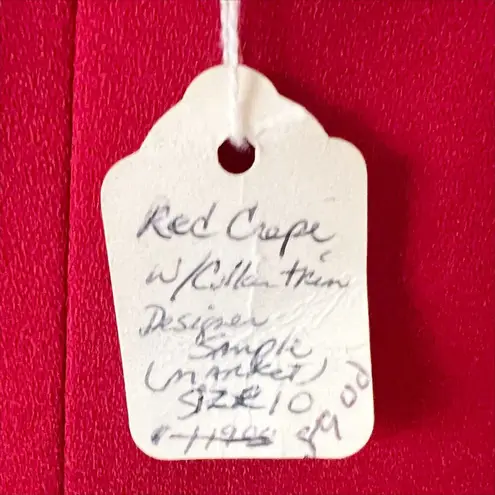 Red Crepe
w/Collar trim
Designer
Sample
(MARKET)
SIZE 10